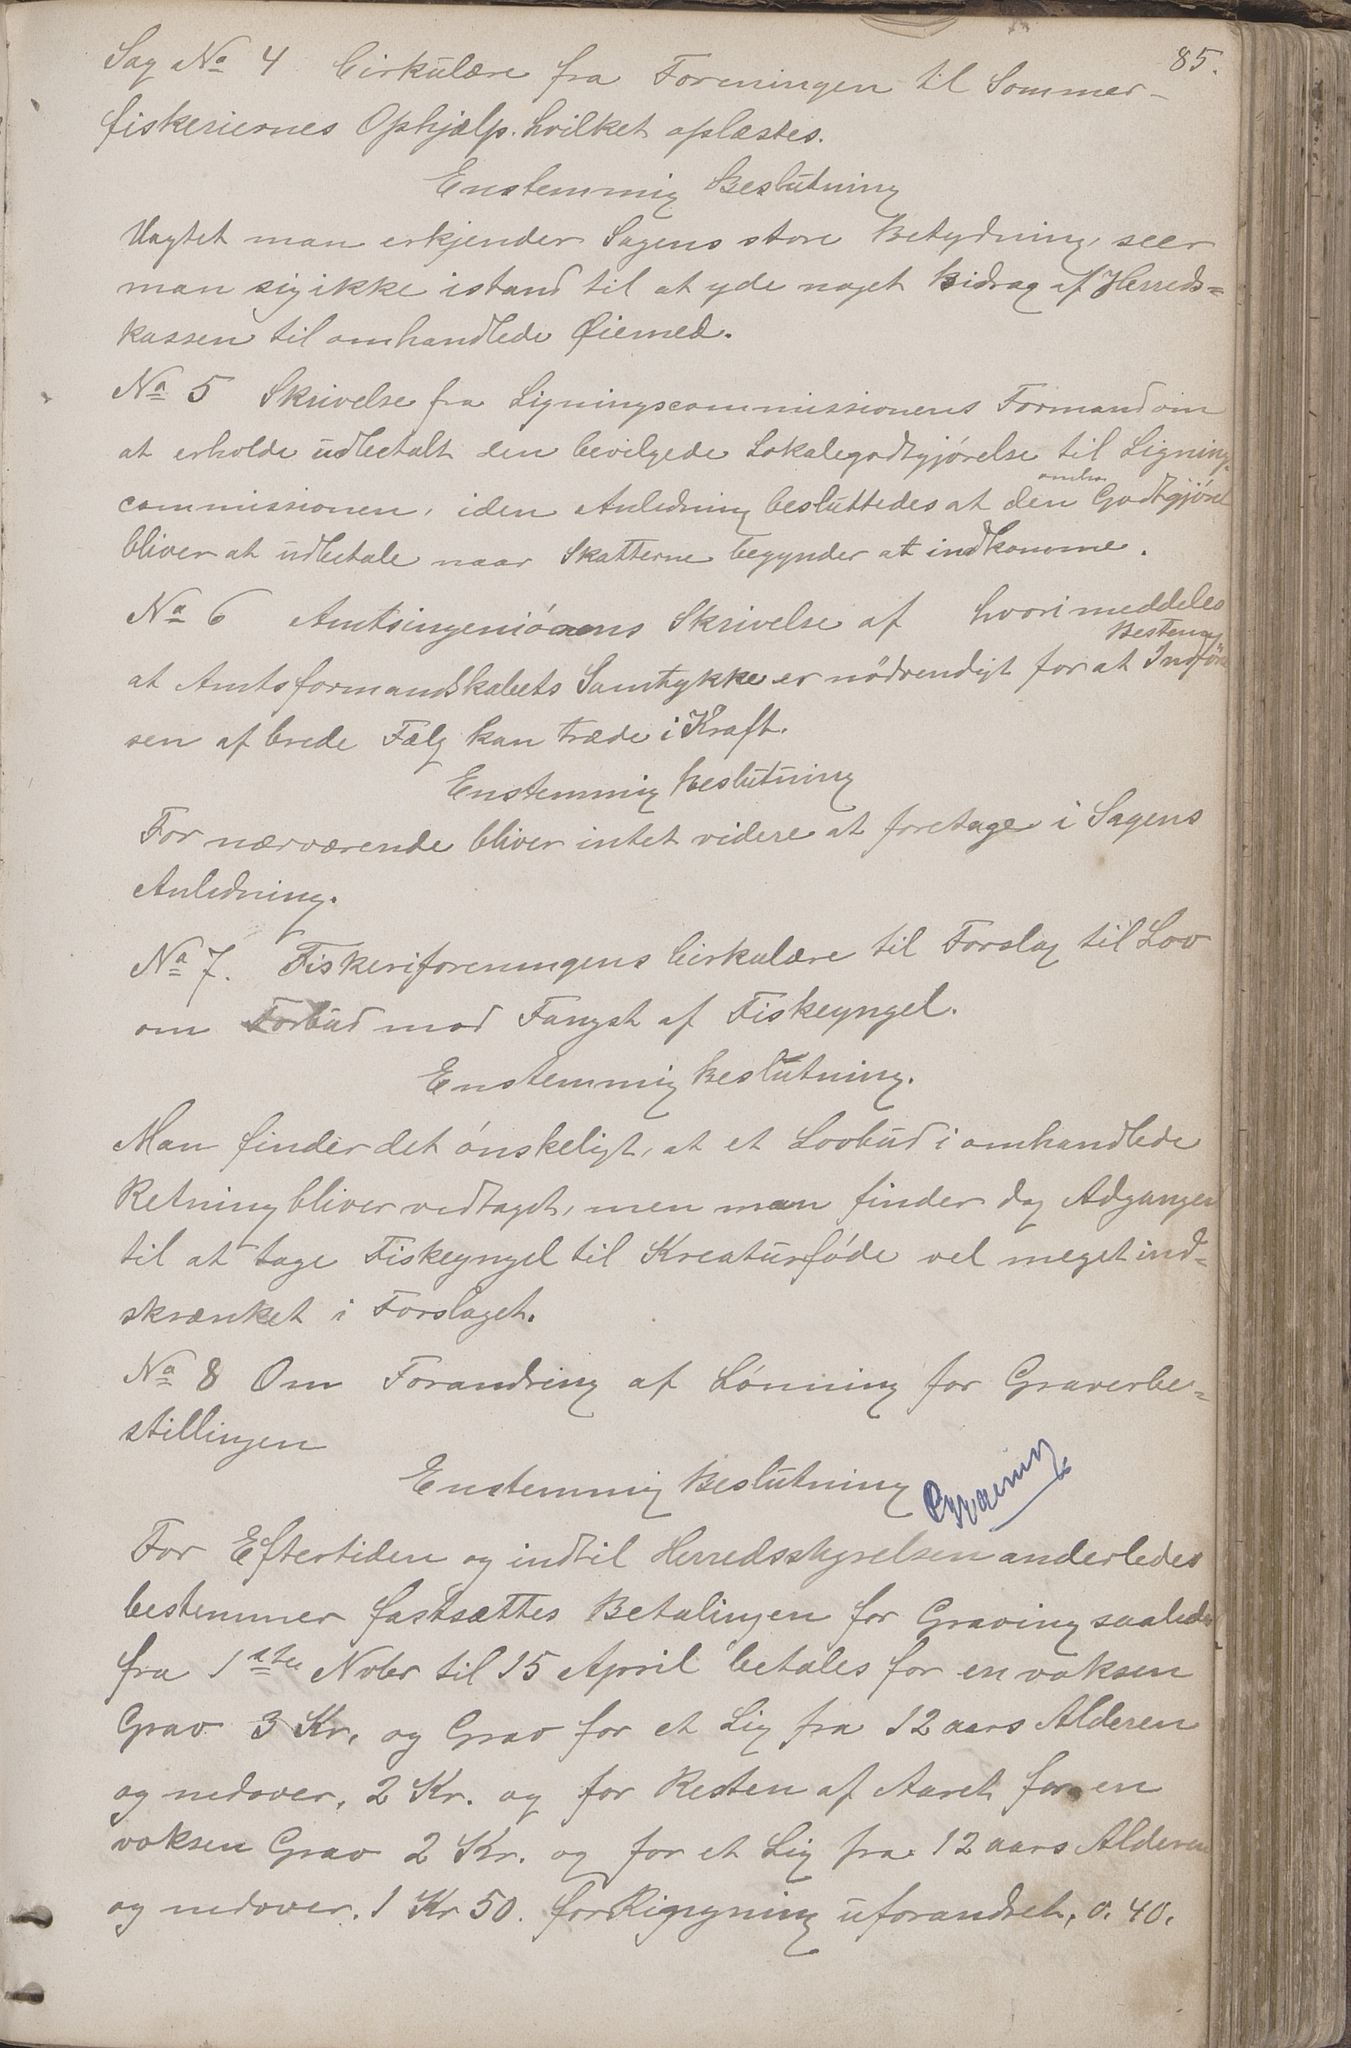 85.
Sag No 4 Cirkulære fra Foreningen til Sommer-
fiskeriernes Ophjælp. hvilket oplæstes.
Enstemmig Beslutning
Uagtet man erkjender Sagens store Betydning, seer
man sig ikke istand til at yde noget Bidrag af Herreds=
kassen til omhandlede Øiemed.
No 5 Skrivelse fra Ligningscommissionens Formand om
at erholde udbetalt den bevilgede Lokalegodtgjørelse til Lignings
commissionen, i den Anledning besluttedes at den omh. Godtgjørel
bliver at udbetale naar Skatterne begynder at indkomme.
No 6 Amtsingeniørens Skrivelse af hvori meddeles
Bestem
at Amtsformandskabets Samtykke er nødvendigt for at Indfør
sen af brede Fælg kan træde i Kraft.
Enstemmig Beslutning
For nærværende bliver intet videre at foretage i Sagens
Anledning.
No 7. Fiskeriforeningens Cirkulære til Forslag til Lov
om Forbud mod Fangst af Fiskeyngel.
Enstemmig Beslutning.
Man finder det ønskeligt, at et Lovbud i omhandlede
Retning bliver vedtaget, men man finder dog Adgangen
til at tage Fiskeyngel til Kreaturføde vel meget ind-
skrænket i Forslaget.
No 8 Om Forandring af Lønning for Graverbe=
stillingen
Enstemmig Beslutning
For Eftertiden og indtil Herredsstyrelsen anderledes
bestemmer fastsættes Betalingen for Graving saaledes
fra 1ste Nvbr til 15 April betales for en voksen
Grav 3 Kr, og Grav for et Lig fra 12 aars Alderen
og nedover, 2 Kr. og for Resten af Aaret for en
voksen Grav 2 Kr. og for et Lig fra 12 aars Alderen
og nedover. 1 Kr 50. for Ringning uforandret, 0. 40.